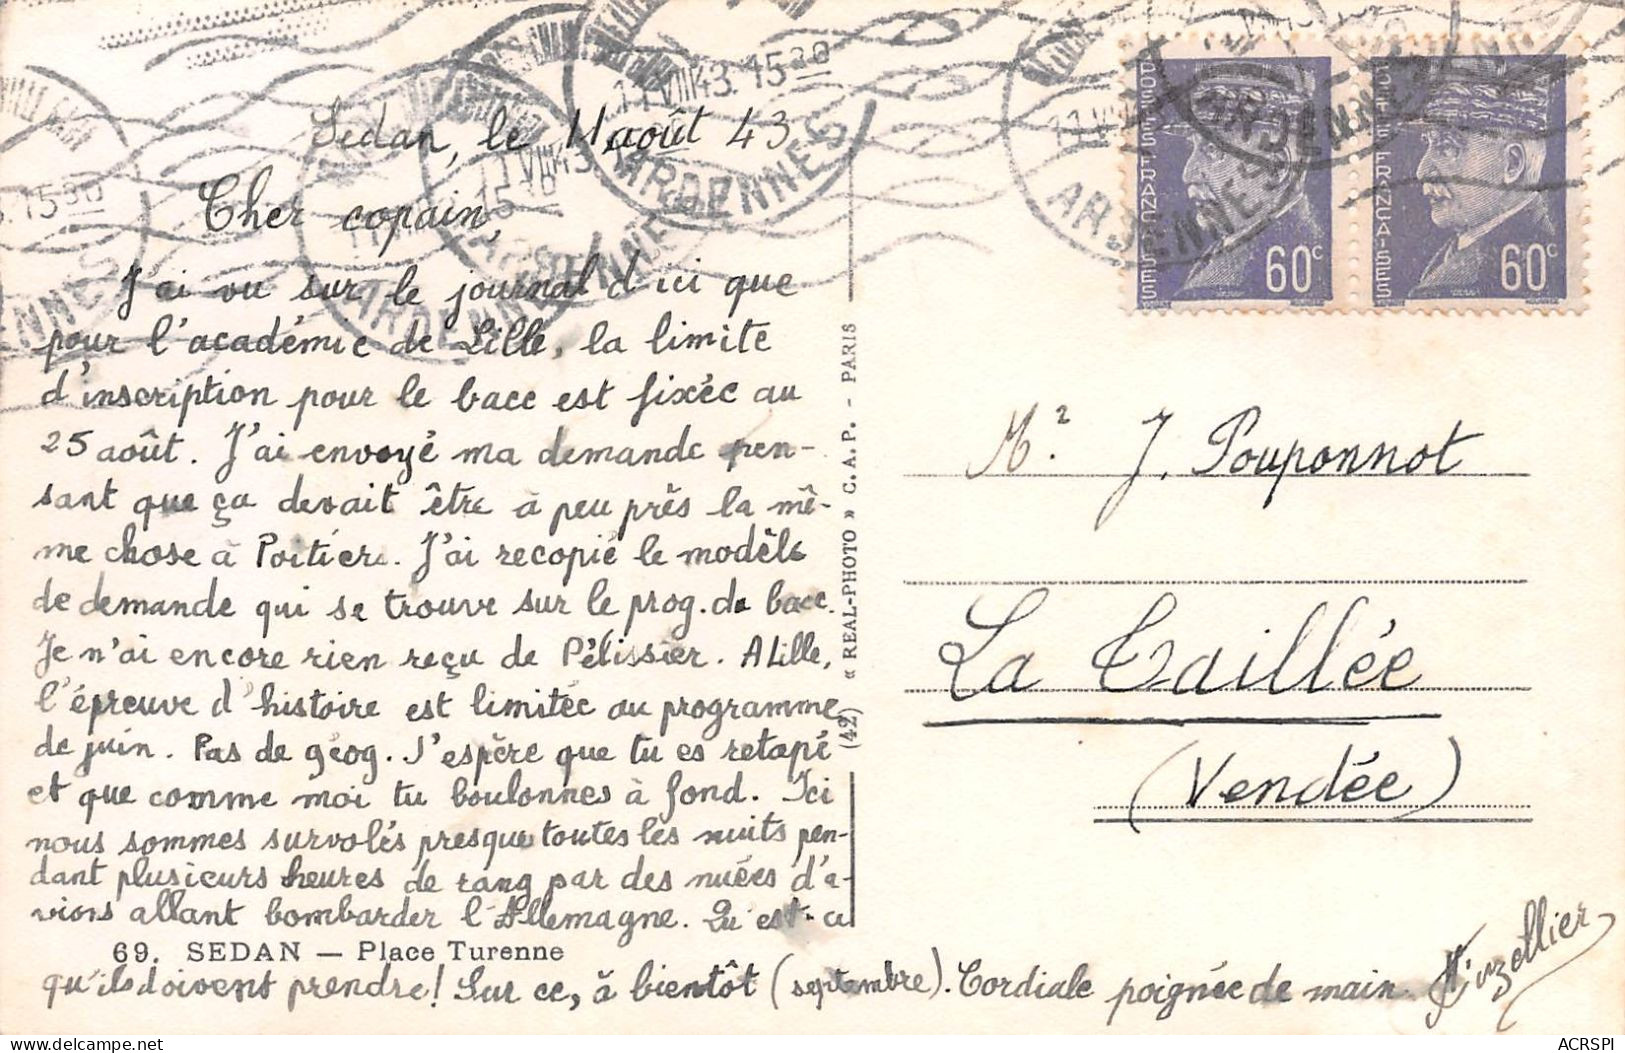 Sedan, le 11 août 43
Cher copain,
J'ai vu sur le journal d'ici que
pour l'académie de Lille, la limite
d'inscription pour le bacc est fixée au
25 août. J'ai envoyé ma demande pen-
sant que ça devait être à peu près la mê-
me chose à Poitiers. J'ai recopié le modèle
de demande qui se trouve sur le prog. du bacc.
Je n'ai encore rien reçu de Pélissier. A Lille,
l'épreuve d'histoire est limitée au programme
de juin. Pas de géog. J'espère que tu es retapé
et que comme moi tu boulonnes à fond. Ici
nous sommes survolés presque toutes les nuits pen-
dant plusieurs heures de rang par des nuées d'a-
vions allant bombarder l'Allemagne. Qu'est-ce
69. SEDAN — Place Turenne
qu'ils doivent prendre! Sur ce, à bientôt (septembre). Cordiale poignée de main.
(42) « REAL-PHOTO » C. A. P. - PARIS
11 VIII 43. 15 30
ARDENNES
11 VIII 43
ARDENNES
15 30
ARDENNES
ARDENNES
POSTES FRANÇAISES
60c
POSTES FRANÇAISES
60c
Mr. J. Pouponnot
La Taillée
(Vendée)
ACRSPI
delcampe.net